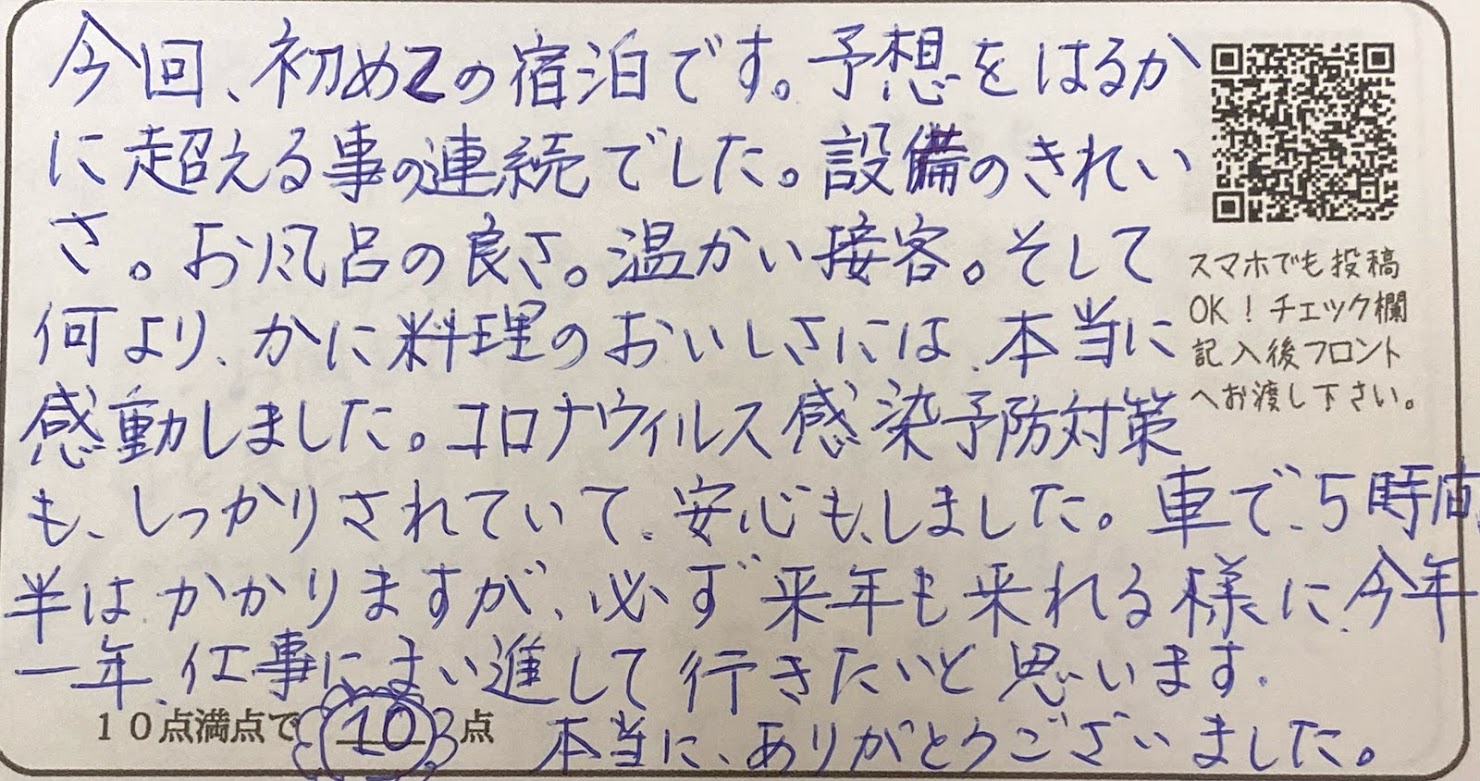 今回、初めての宿泊です。予想をはるか
に超える事の連続でした。設備のきれい
さ。お風呂の良さ。温かい接客。そして
何より、かに料理のおいしさには、本当に
感動しました。コロナウィルス感染予防対策
も、しっかりされていて、安心もしました。車で、5時間
半はかかりますが、必ず来年も来れる様に、今年
一年、仕事にまい進して行きたいと思います。
10点満点で 10 点
本当に、ありがとうございました。
スマホでも投稿
OK！チェック欄
記入後フロント
へお渡し下さい。